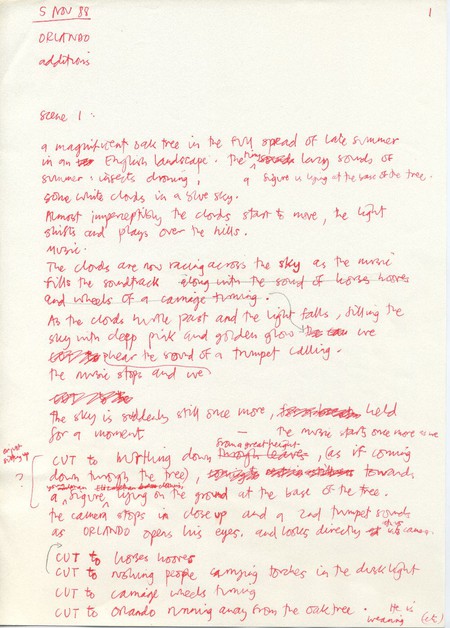 5 NOV 88
1
ORLANDO
additions
Scene 1 :
a magnificent oak tree in the full spread of late summer
in an English landscape. The lazy sounds of
summer : insects droning, a figure is lying at the base of the tree.
some white clouds in a blue sky.
Almost imperceptibly the clouds start to move, the light
shifts and plays over the hills.
MUSIC.
The clouds are now racing across the sky as the music
fills the soundtrack along with the sound of horses hooves
and wheels of a carriage turning.
As the clouds hurtle past and the light falls, filling the
sky with deep pink and golden glow we
hear the sound of a trumpet calling.
the music stops and we
The sky is suddenly still once more, held
for a moment — the music starts once more as we
from a great height
CUT to hurtling down through leaves, (as if coming
down through the tree), towards
a figure lying on the ground at the base of the tree.
?
the camera stops in close up and a 2nd trumpet sounds
as ORLANDO opens his eyes. and looks directly at the camera.
CUT to horses hooves
CUT to rushing people carrying torches in the dusk light
CUT to carriage wheels turning
CUT to Orlando running away from the oak tree. He is
wearing (ct)